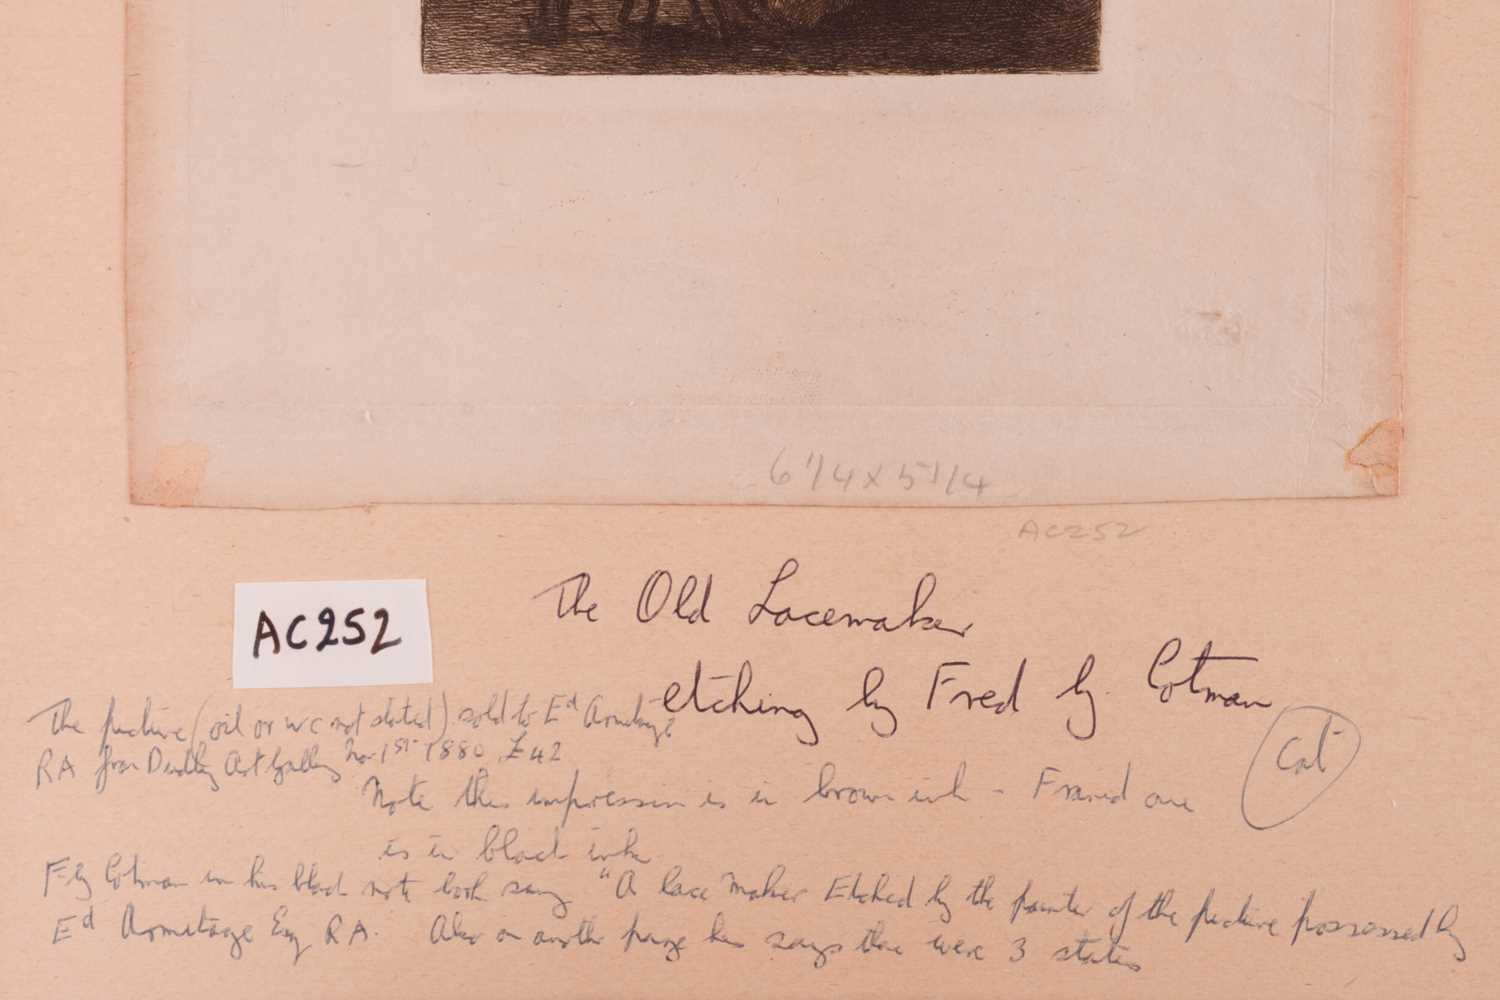 6 1/4 x 5 1/4
AC252
The Old Lacemaker
AC252
etching by Fred G. Cotman
The picture (oil or wc not stated) sold to Ed Armitage
RA from Dudley Art Gallery Nov 1st 1880 £42
Cat
Note this impression is in brown ink - Framed one
is in black ink
F G Cotman in his black note book says "A lace maker Etched by the painter of the picture possessed by
Ed Armitage Esq RA. Also on another page he says there were 3 states